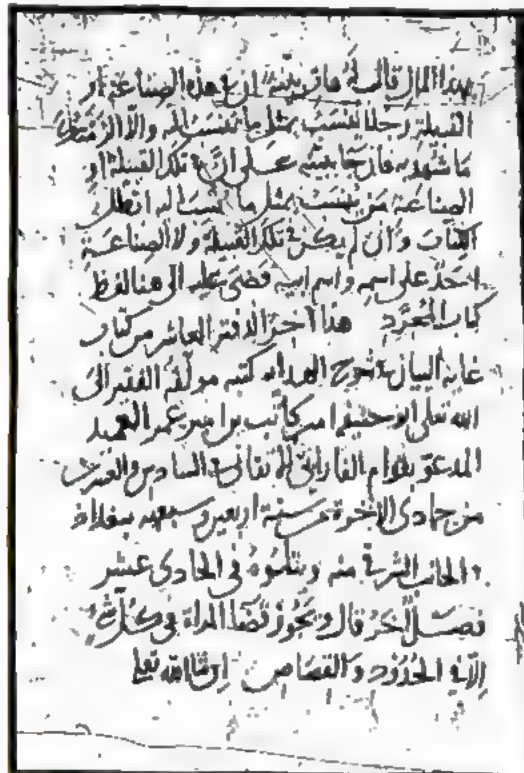 بهذا المال قال له هات بينة ان في هذه الصناعة او
القبيلة رجلا ينسب بمثل ما ينسب اليه والا الزمتك
ما شهدوا به فان جا ببينة على ان في تلك القبيلة او
الصناعة من ينسب بمثل ما نسب اليه ابطل
الكتاب وان لم يكن في تلك القبيلة ولا الصناعة
احد على اسمه واسم ابيه قضى عليه الى هنا لفظ
كتاب المجرد هذا آخر الدفتر العاشر من كتاب
غاية البيان في شرح الهداية كتبه مولفه الفقير الى
الله تعالى ابو حنيفة امير كاتب بن امير عمر العميد
المدعو بقوام الفارابي الاتقاني في السادس والعشرين
من جمادى الاخرة من سنة اربعين وسبعمية ببغداد
في الجانب الشرقي منه ويتلوه في الحادى عشر
فصل آخر قال ويجوز قضا المراة في كل شي
الا في الحدود والقصاص ان شا الله تعالى